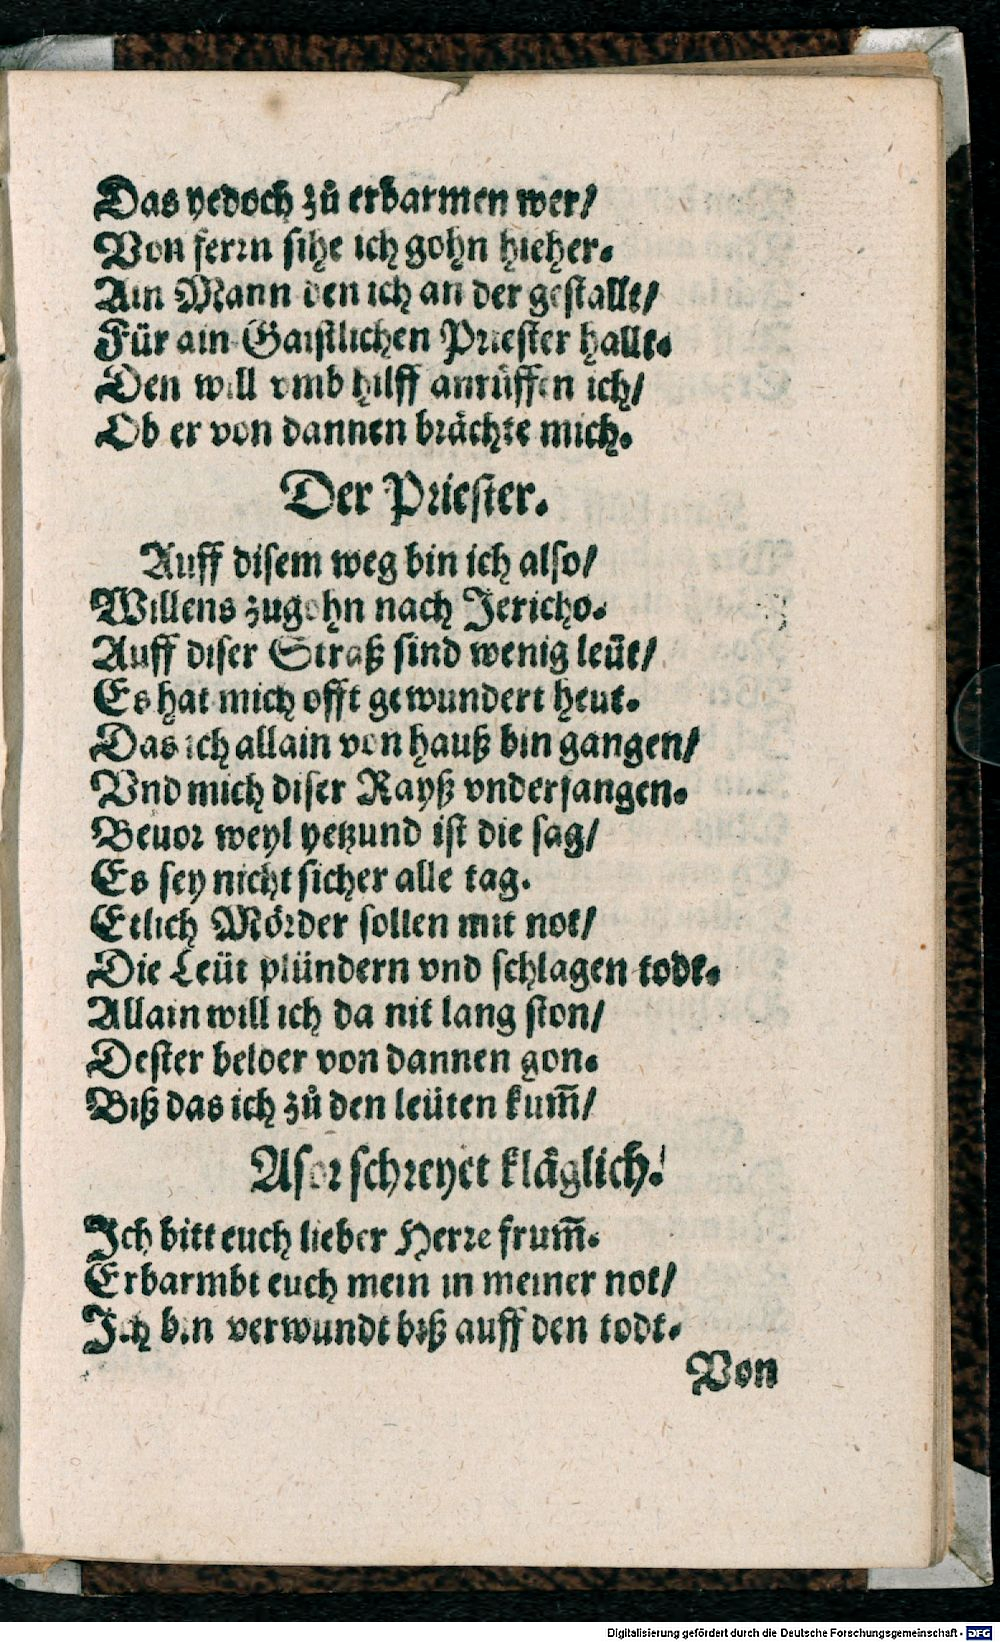 Das yedoch zů erbarmen wer/
Von ferrn sihe ich gohn hieher.
Ain Mann den ich an der gestallt/
Für ain Gaistlichen Priester hallt.
Den will vmb hilff anrüffen ich/
Ob er von dannen brächte mich.
Der Priester.
Auff disem weg bin ich also/
Willens zugohn nach Jericho.
Auff diser Straß sind wenig leüt/
Es hat mich offt gewundert heut.
Das ich allain von hauß bin gangen/
Vnd mich diser Rayß vnderfangen.
Beuor weyl yetzund ist die sag/
Es sey nicht sicher alle tag.
Etlich Mörder sollen mit not/
Die Leüt plündern vnd schlagen todt.
Allain will ich da nit lang ston/
Dester belder von dannen gon.
Biß das ich zů den leüten kum̄/
Asor schreyet kläglich.
Ich bitt euch lieber Herre frum̄.
Erbarmbt euch mein in meiner not/
Ich bin verwundt biß auff den todt.
Von
Digitalisierung gefördert durch die Deutsche Forschungsgemeinschaft - DFG